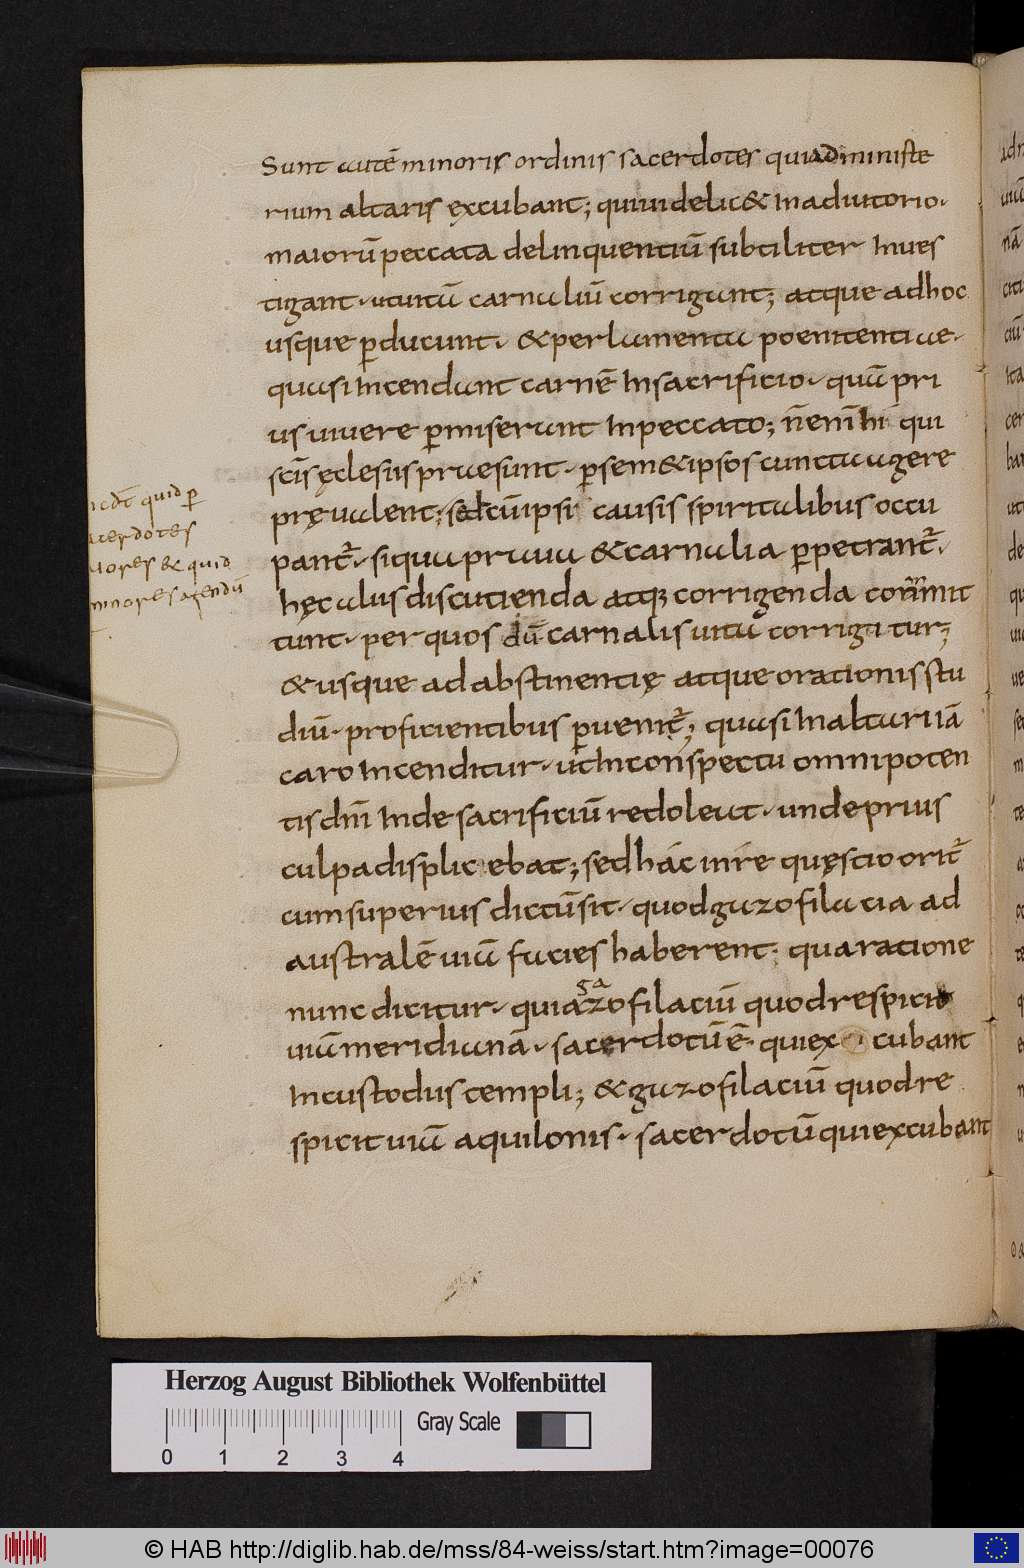 Sunt autē minoris ordinis sacerdotes qui ad ministe
rium altaris excubant; qui uidelic& in adiutorio.
maiorū peccata delinquentiū subtiliter inues
tigant. uitiū carnaliū corrigunt; atque ad hoc
usque ꝑducunt. & per lamenta poenitentiae.
quasi incendant carnē in sacrificio. quā pri
us uiuere ꝑmiserunt in peccato; n̄ enī hi qui
scīs ęclesiis praesunt. ꝑ sem&ipsos cuncta agere
pręualent; sed cū ipsi causis spiritalibus occu
pant᷑. siqua praua & carnalia ꝑpetrant᷑.
hęc aliis discutienda atq; corrigenda committ
tunt. per quos dū carnalis uita corrigitur;
& usque ad abstinentię atque orationis stu
diū. proficientibus ꝑuenit᷑; quasi in altari iā
caro incenditur. ut in conspectu omnipoten
tis dn̄i inde sacrificiū redoleat. unde prius
culpa displicebat; sed hác in re quęstio orit᷑
cum superius dictū sit. quod gazofilacia ad
australē uiā facies haberent. qua ratione
nunc dicitur. quia gazofilaciū quod respicit
uiā meridianā. sacerdotū ē. qui excubant
in custodiis templi; & gazofilaciū quod re
spicit uiā aquilonis. sacerdotū qui excubant
quid ꝑ
acerdotes
iores & quid
minores agendū
Herzog August Bibliothek Wolfenbüttel
Gray Scale
0 1 2 3 4
© HAB http://diglib.hab.de/mss/84-weiss/start.htm?image=00076